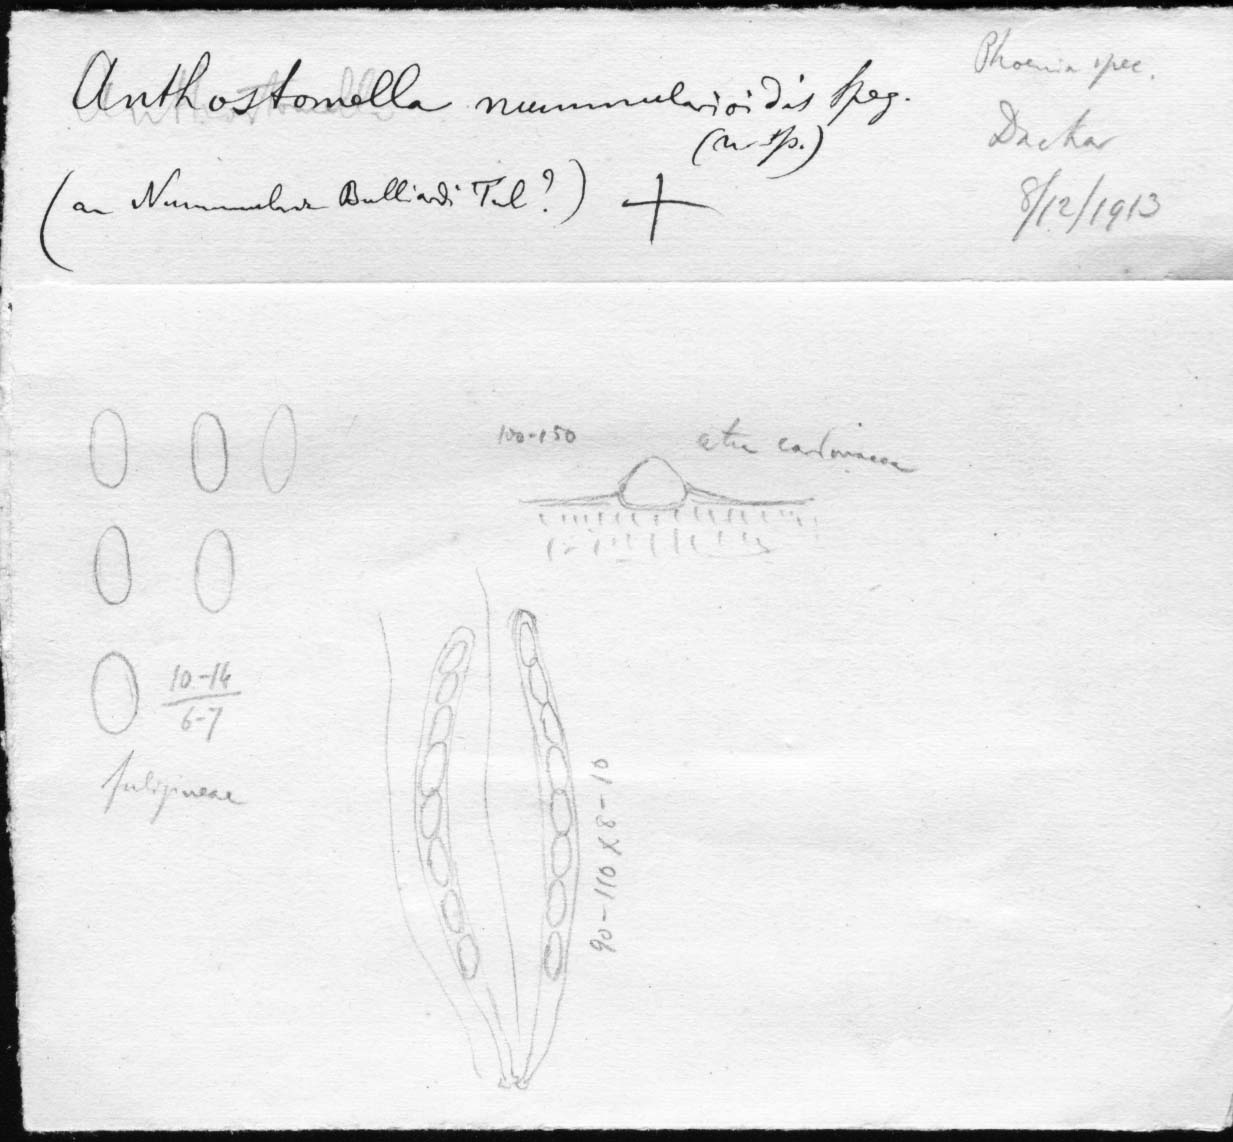 Anthostomella nummularioides Speg.
(n. sp.)
(an Nummularia Bulliardi Tul?) +
Phoenix spec.
Dackar
8/12/1913
100-150
atra carbonacea
10-14
6-7
fuligineae
90-110 x 8-10